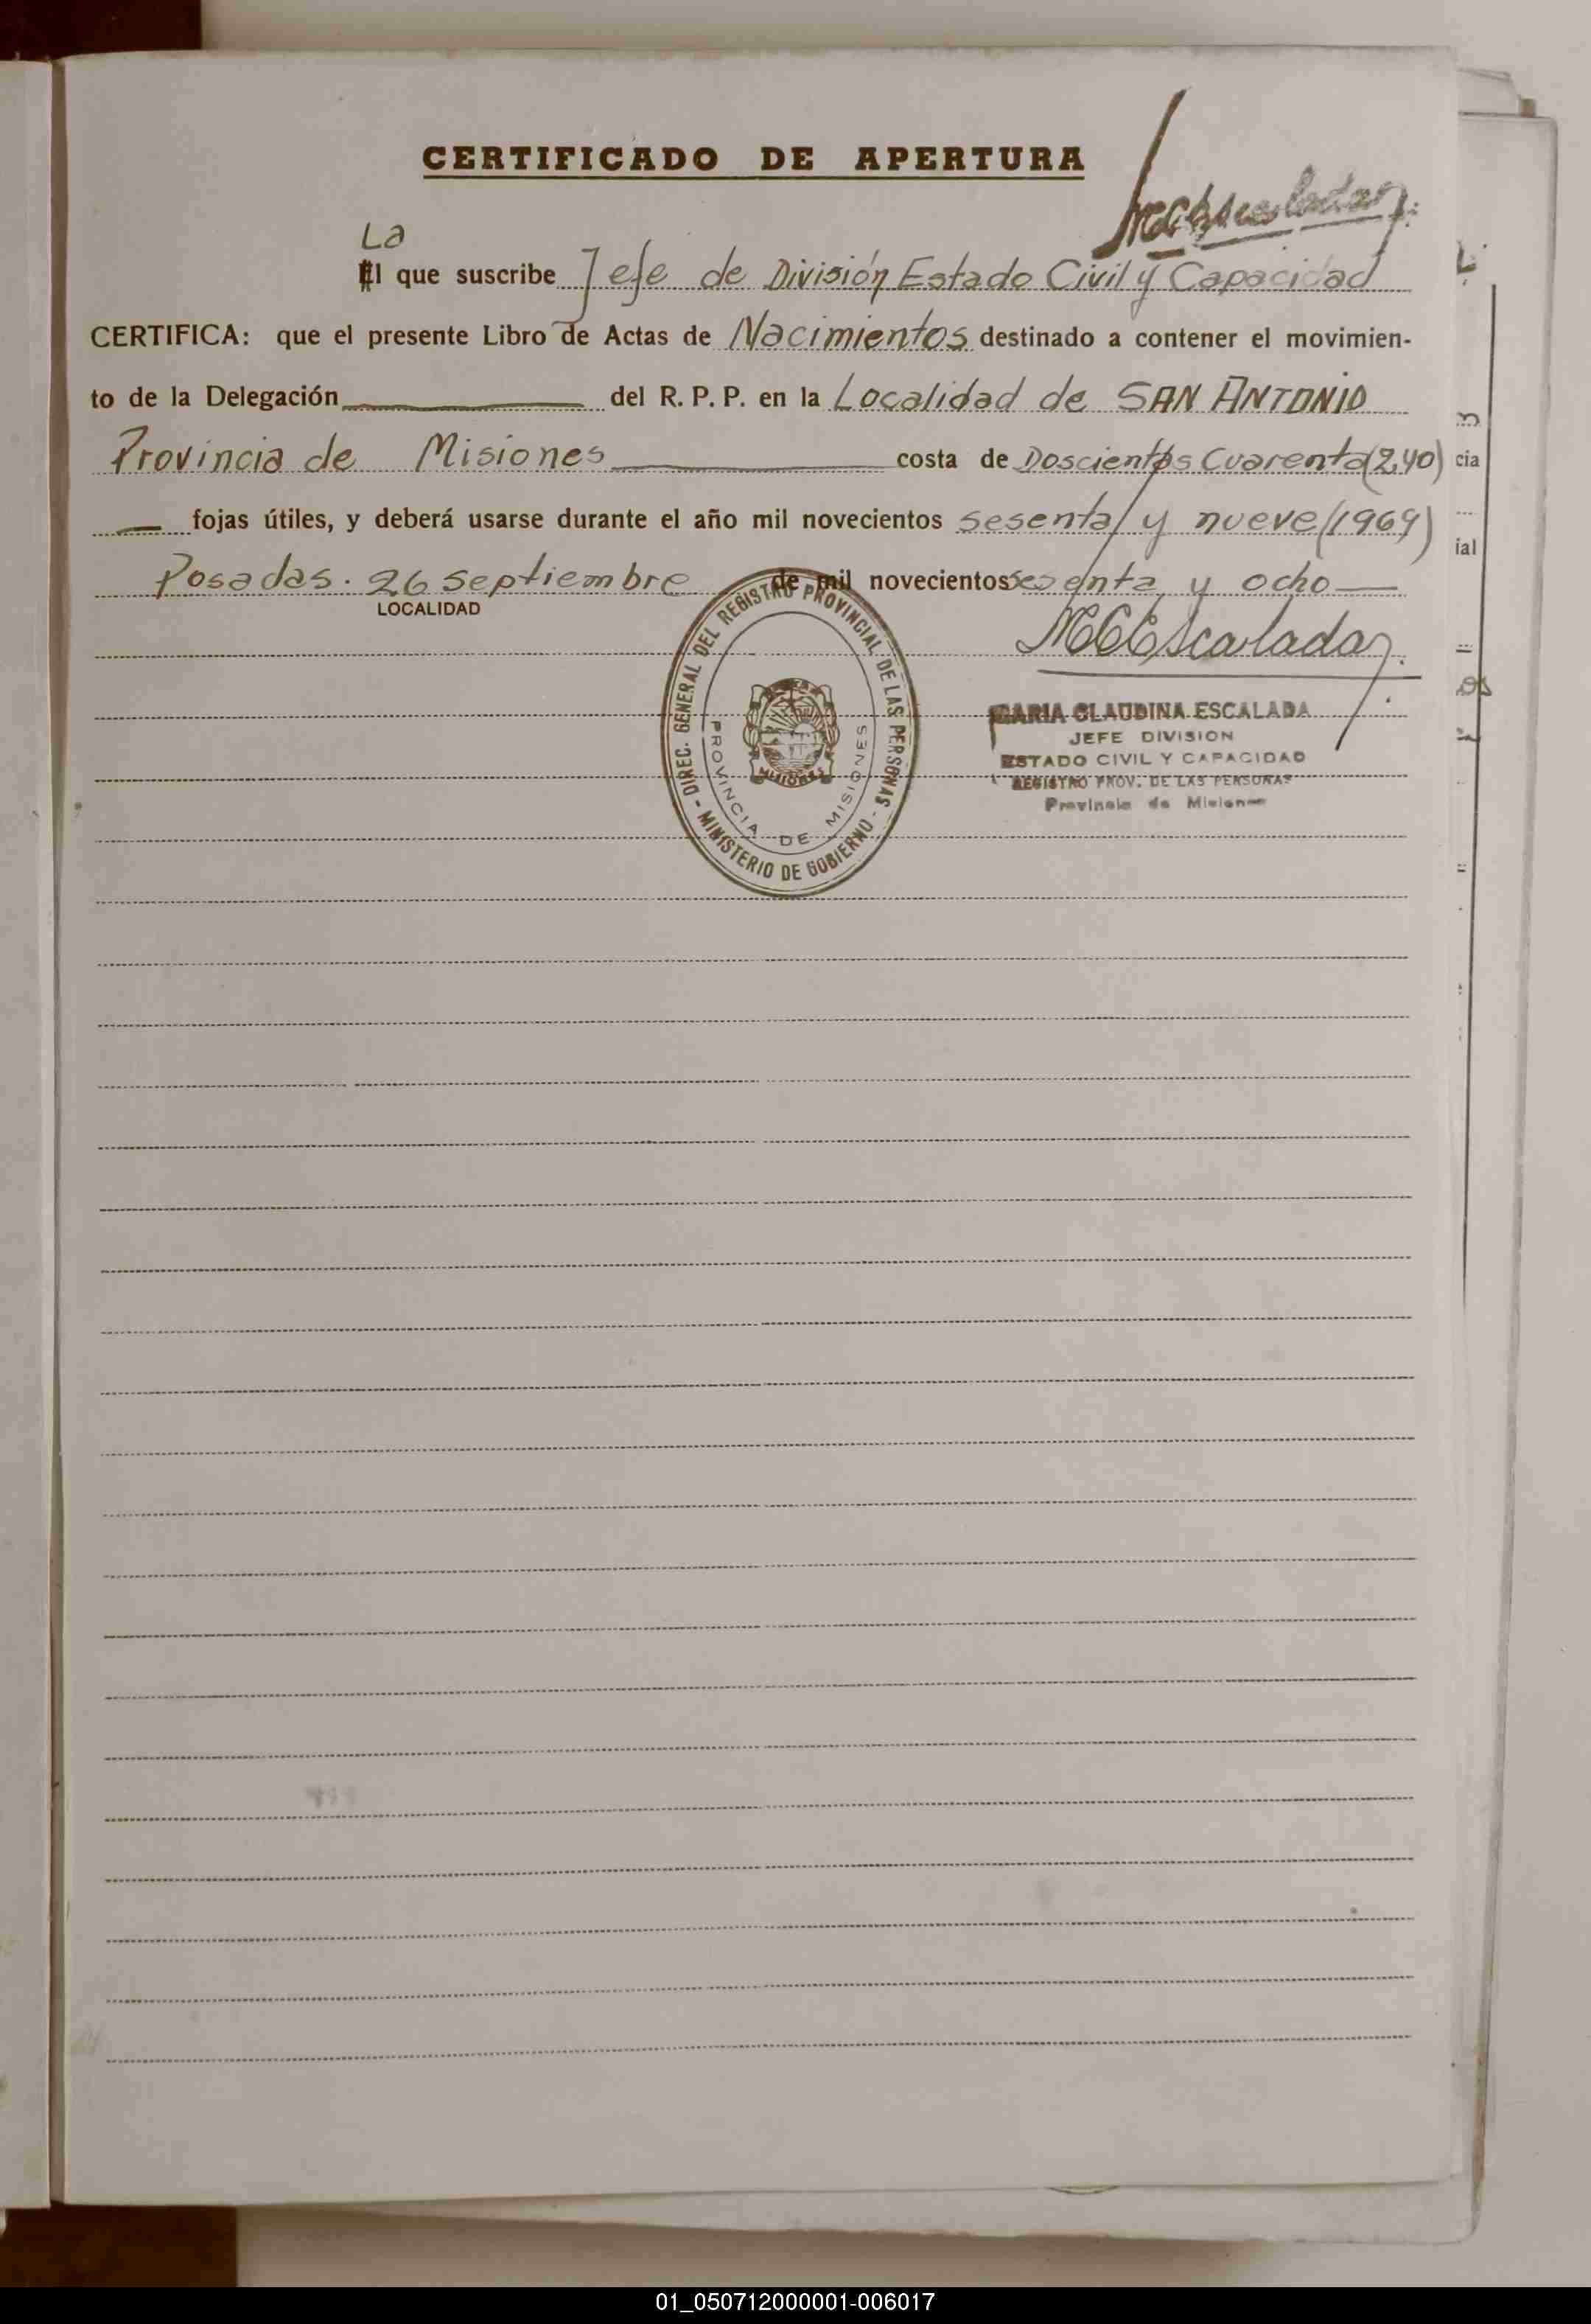 CERTIFICADO DE APERTURA
La
El que suscribe Jefe de División Estado Civil y Capacidad
CERTIFICA: que el presente Libro de Actas de Nacimientos destinado a contener el movimien-
to de la Delegación del R. P. P. en la Localidad de SAN ANTONIO
Provincia de Misiones costa de Doscientos Cuarenta (240)
fojas útiles, y deberá usarse durante el año mil novecientos sesenta y nueve (1969)
Posadas. 26 septiembre de mil novecientos sesenta y ocho
LOCALIDAD
MCEscalada
DIREC. GENERAL DEL REGISTRO PROVINCIAL DE LAS PERSONAS - MINISTERIO DE GOBIERNO -
PROVINCIA DE MISIONES
MISIONES
MARIA CLAUDINA ESCALADA
JEFE DIVISION
ESTADO CIVIL Y CAPACIDAD
REGISTRO PROV. DE LAS PERSONAS
Provincia de Misiones
cia
ial
os
01_050712000001-006017